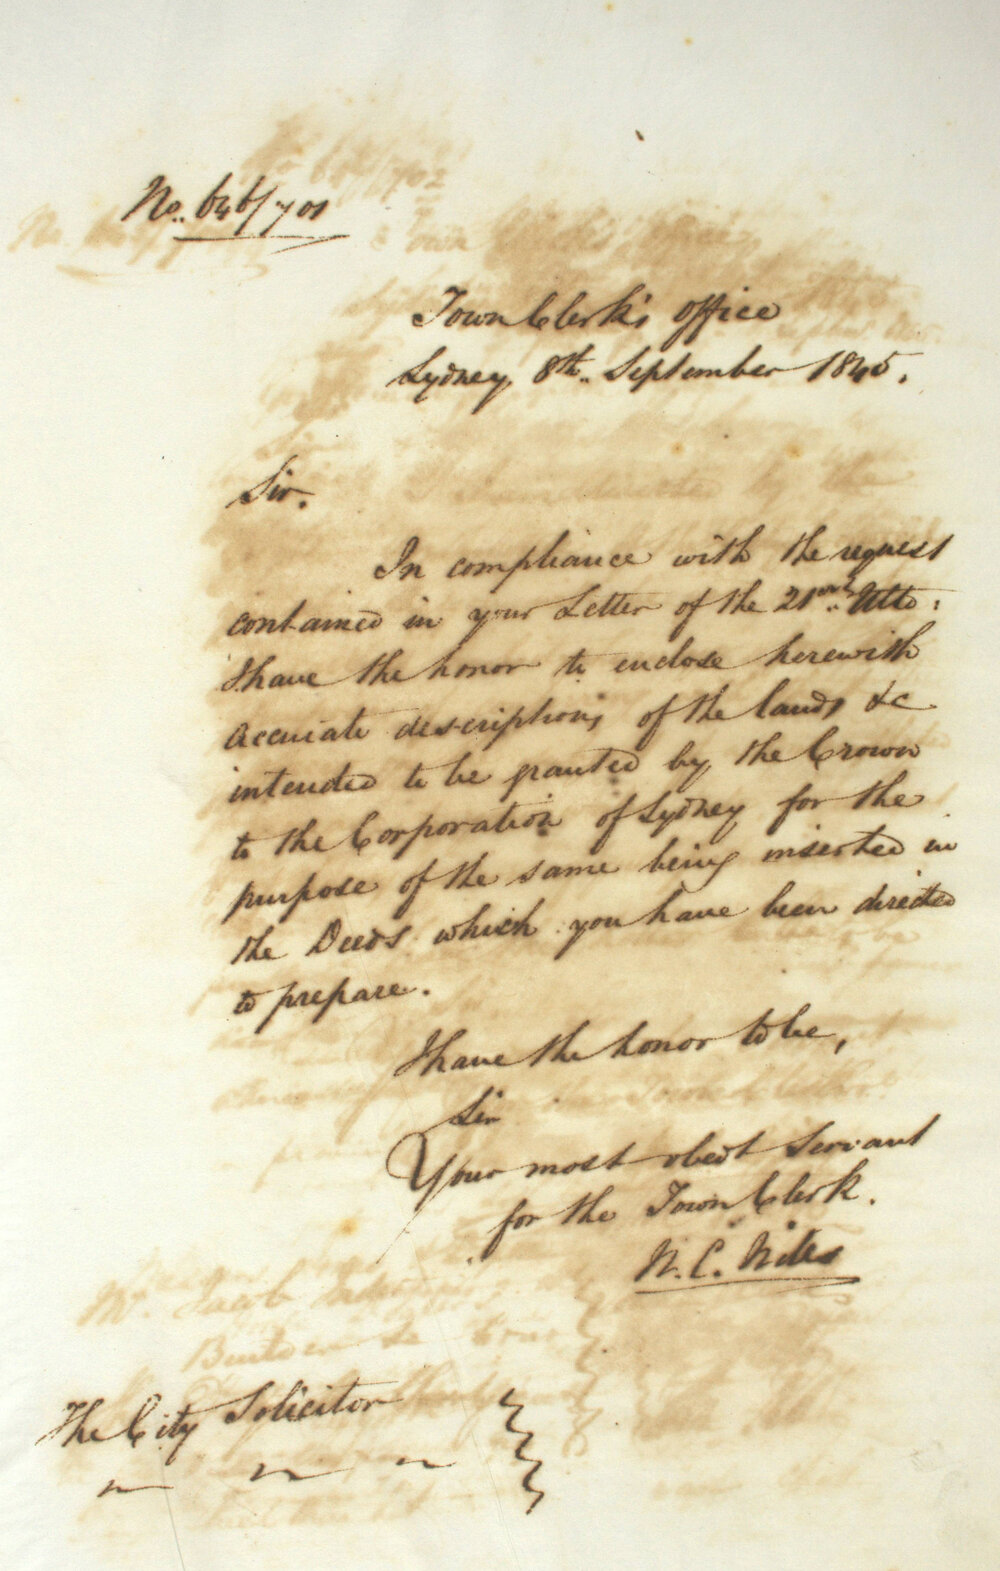 No. 646/701
Town Clerk's office
Sydney, 8th.. September 1845.
Sir.
In compliance with the request
contained in your Letter of the 21st.. Ulto:
I have the honor to enclose herewith
accurate descriptions of the lands &c
intended to be granted by the Crown
to the Corporation of Sydney for the
purpose of the same being inserted in
the Deeds which you have been directed
to prepare.
I have the honor to be,
Sir
Your most obedt Servant
for the Town Clerk.
The City Solicitor